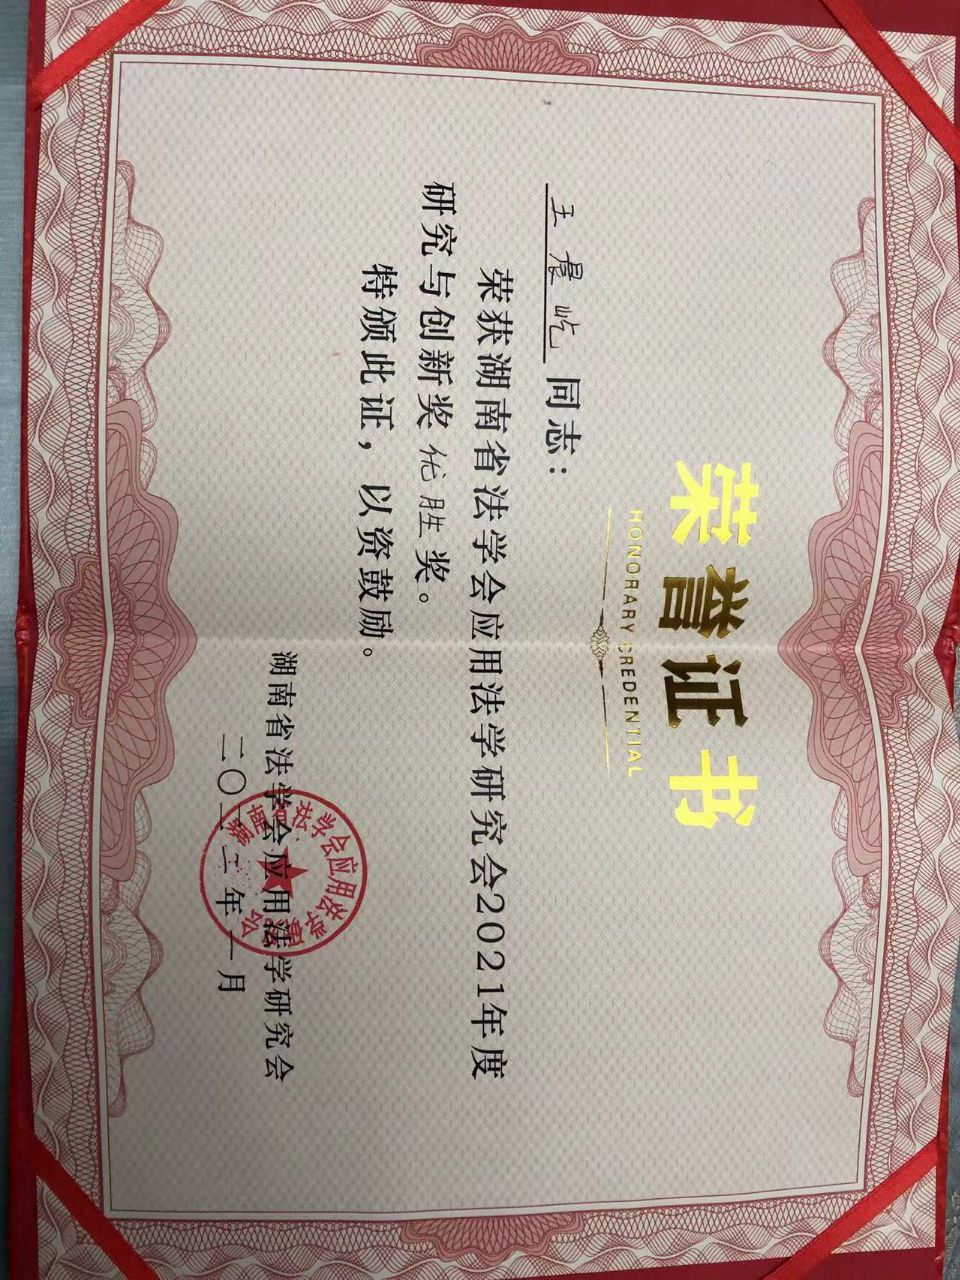 荣誉证书
HONORARY CREDENTIAL
王晨屹 同志：
荣获湖南省法学会应用法学研究会2021年度
研究与创新奖 优胜 奖。
特颁此证，以资鼓励。
湖南省法学会应用法学研究会
二〇二二年一月
湖南省法学会应用法学研究会